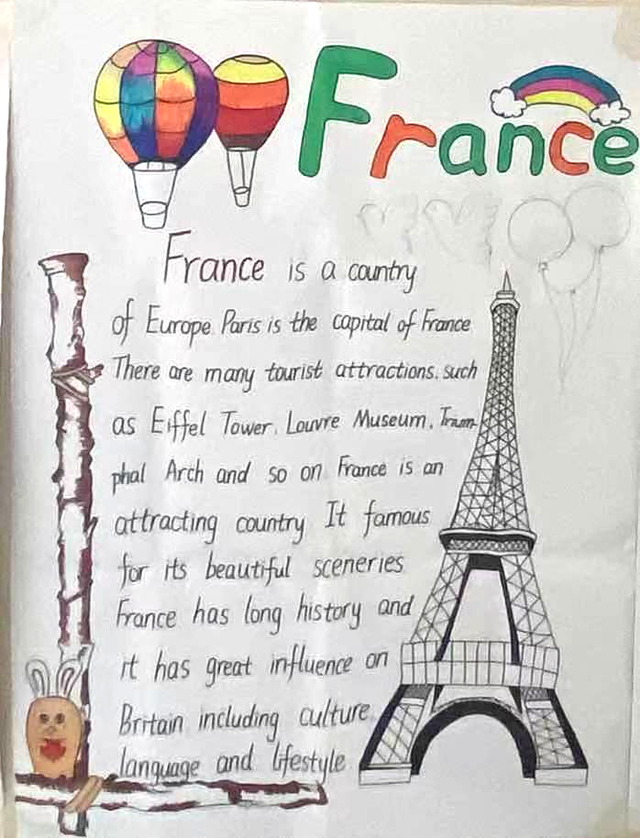 France
France is a country
of Europe. Paris is the capital of France
There are many tourist attractions, such
as Eiffel Tower, Louvre Museum, Trium-
phal Arch and so on. France is an
attracting country It famous
for its beautiful sceneries
France has long history and
it has great influence on
Britain including culture
language and lifestyle